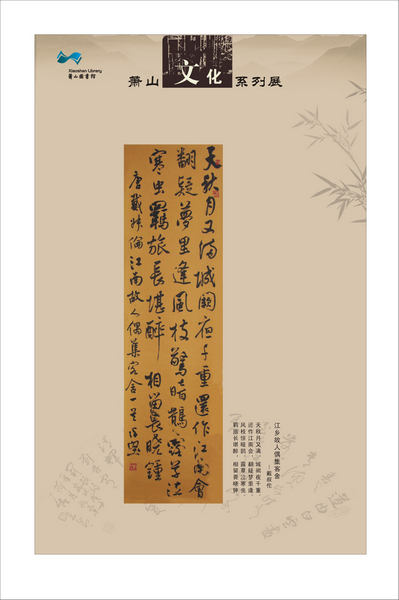 Xiaoshan Library
萧山图书馆
萧山文化系列展
天秋月又满城阙夜千重還作江南會
翻疑夢里逢風枝驚暗鵲露草泣
寒虫羈旅長堪醉相留畏曉鐘
唐戴叔倫江南故人偶集客舍一首
江乡故人偶集客舍
—戴叔伦
天秋月又满，城阙夜千重。
还作江南会，翻疑梦里逢。
风枝惊暗鹊，露草泣寒虫。
羁旅长堪醉，相留畏晓钟。